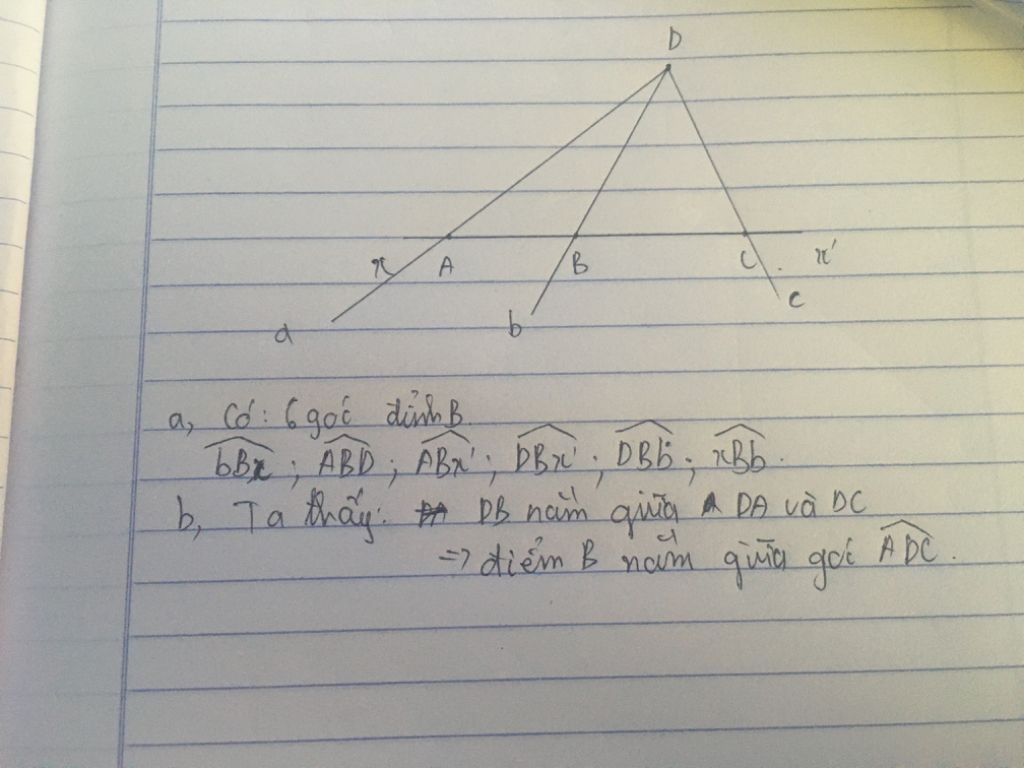 D
x A B C x'
a b c
a, Có: 6 góc đỉnh B.
bBx ; ABD ; ABx' ; DBx' ; DBb ; xBb.
b, Ta thấy: DB nằm giữa DA và DC
=> điểm B nằm giữa góc ADC.